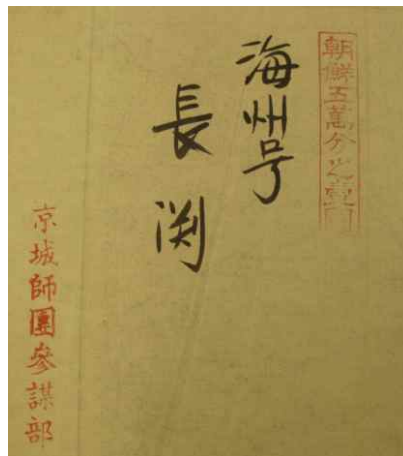 朝鮮五萬分之壹圖
海州号
長渕
京城師團參謀部